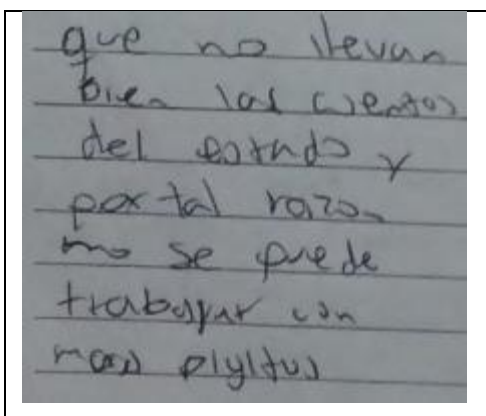 que no llevan
bien las cuentas
del estado y
por tal razon
no se puede
trabajar con
mas